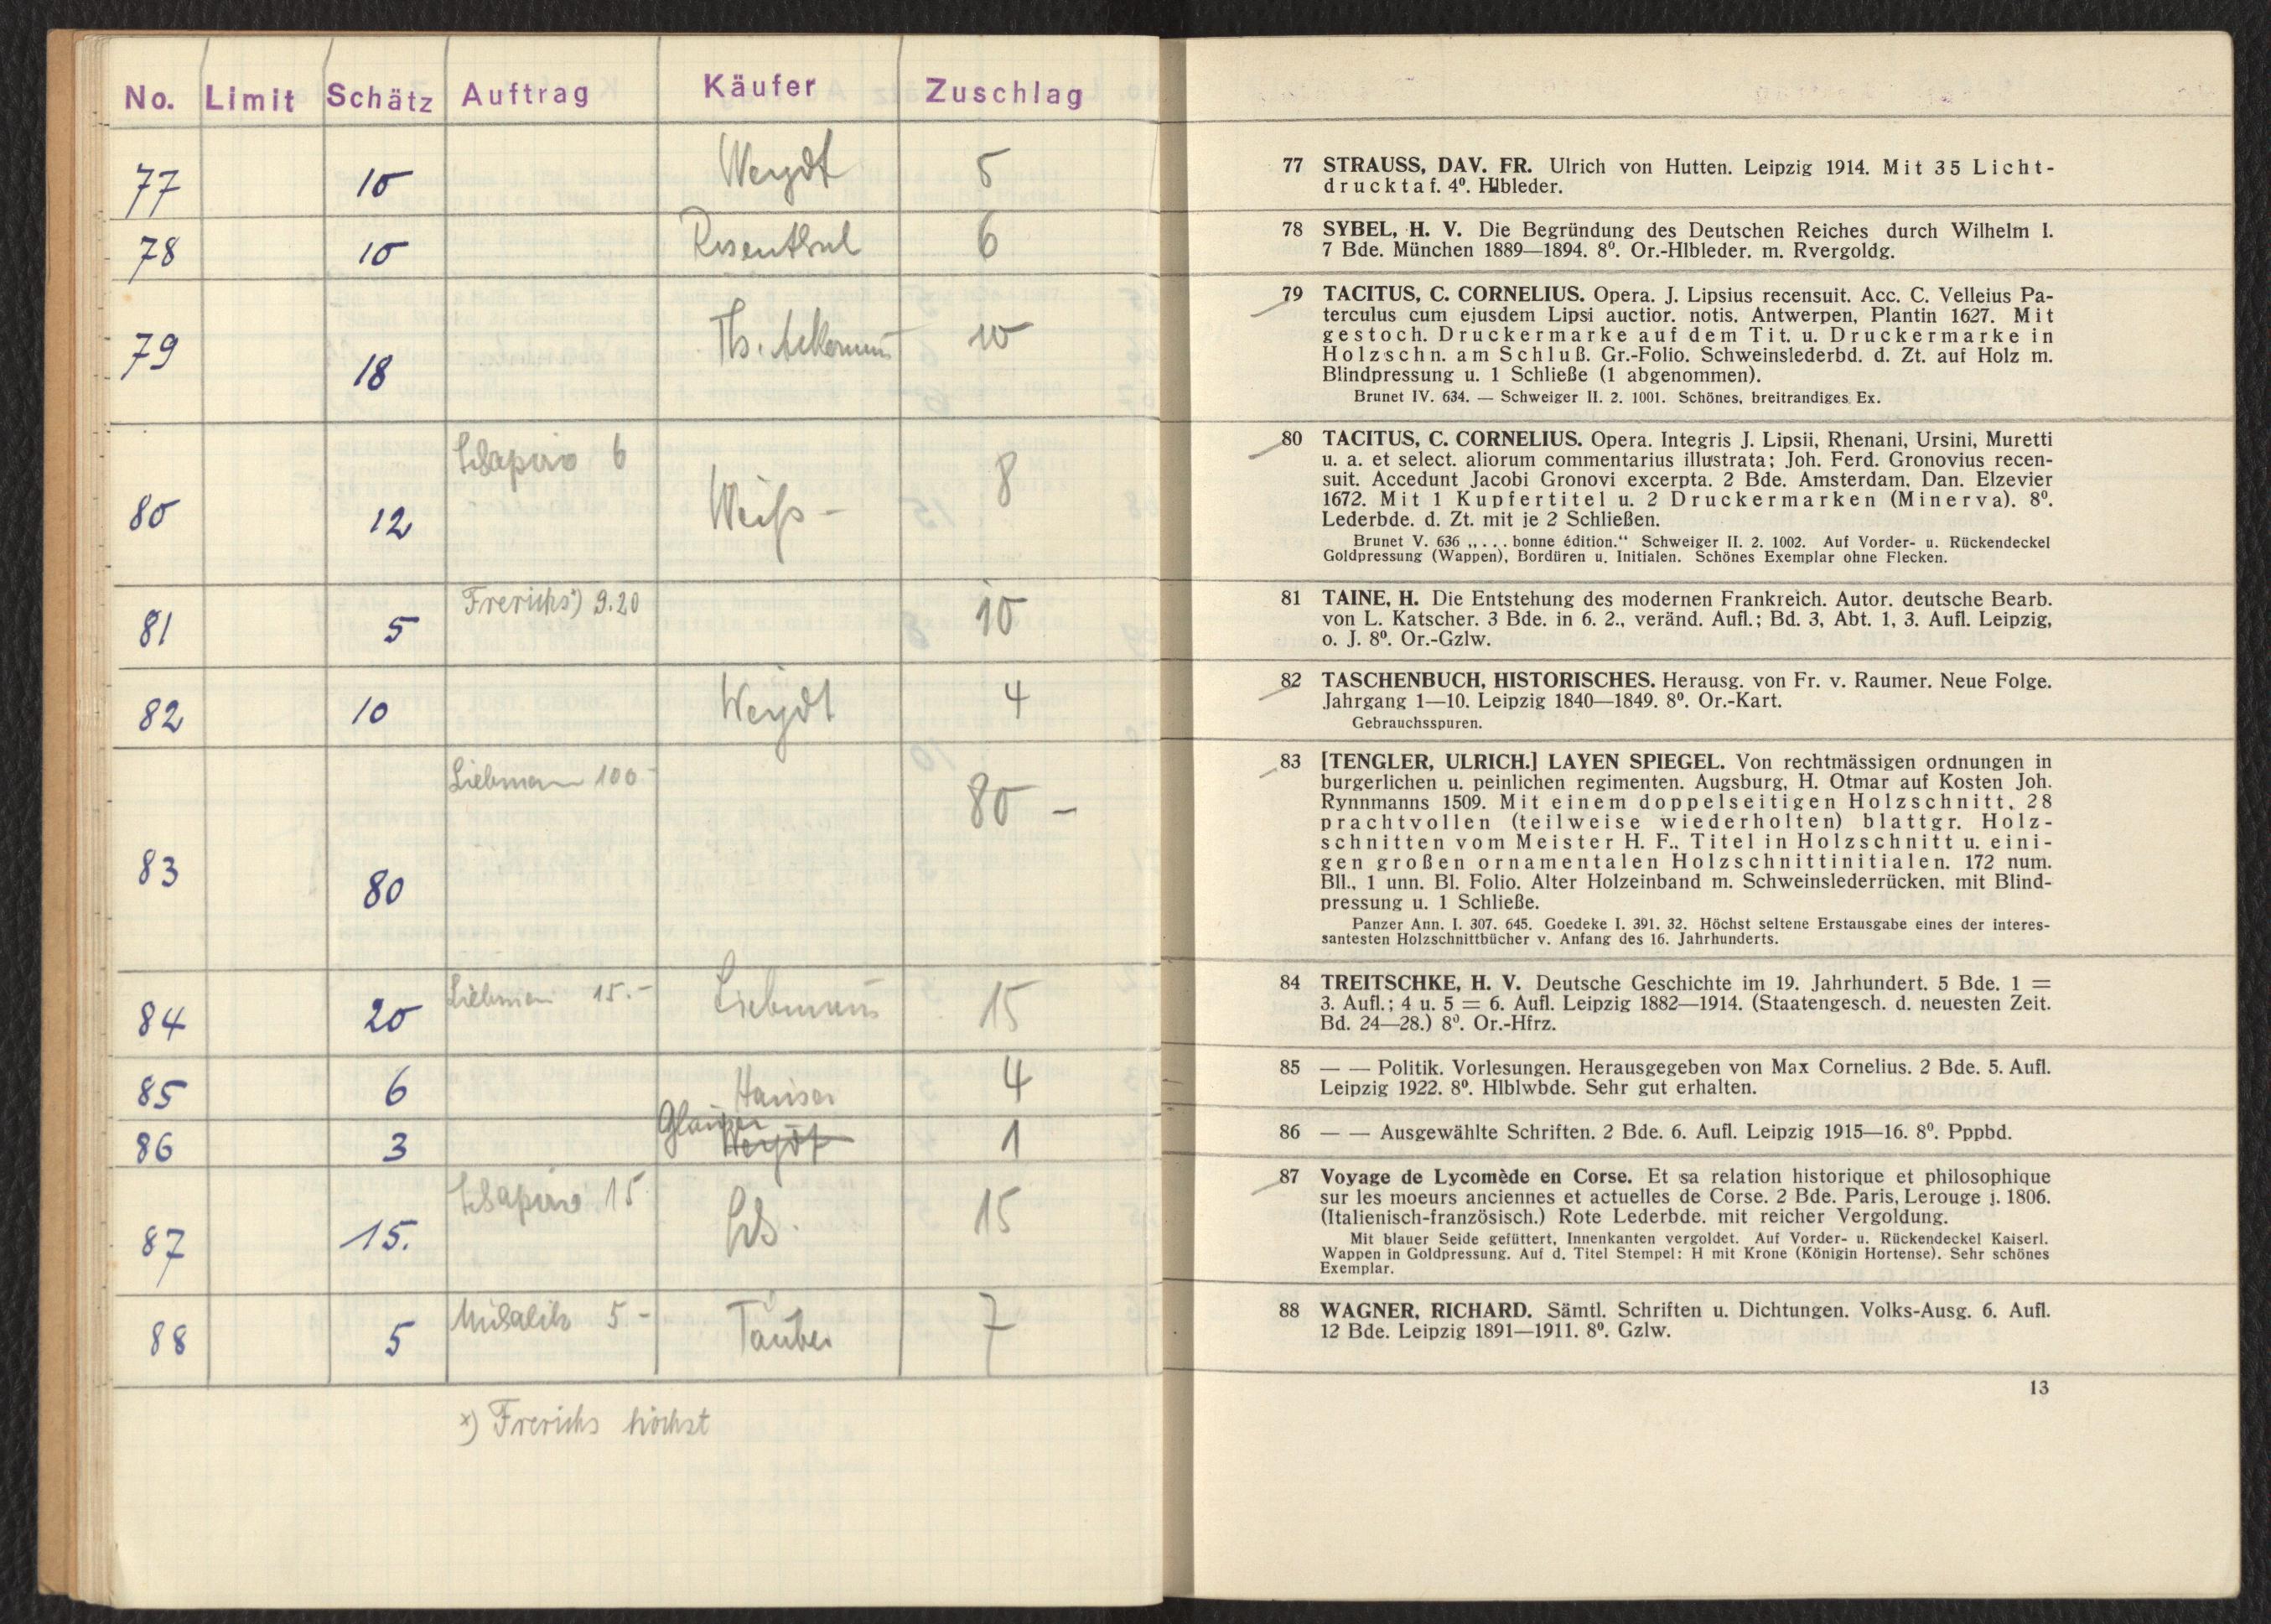 No. Limit Schätz Auftrag Käufer Zuschlag
77 10 Weydt 5
78 10 Rosenthal 6
79 18 Th. Ackermann 10
80 12 Schapiro 6 Weiß - 8
81 5 Frerichs x) 9.20 10
82 10 Weydt 4
83 80 Liebmann 100 80 -
84 20 Liebmann 15.- Liebmann 15
85 6 Hauser 4
86 3 Weydt 1
87 15. Schapiro 15 15
88 5 5 - Tauber 7
x) Frerichs höchst
77 STRAUSS, DAV. FR. Ulrich von Hutten. Leipzig 1914. Mit 35 Licht-
drucktaf. 4⁰. Hlbleder.
78 SYBEL, H. V. Die Begründung des Deutschen Reiches durch Wilhelm I.
7 Bde. München 1889—1894. 8⁰. Or.-Hlbleder. m. Rvergoldg.
79 TACITUS, C. CORNELIUS. Opera. J. Lipsius recensuit. Acc. C. Velleius Pa-
terculus cum ejusdem Lipsi auctior. notis. Antwerpen, Plantin 1627. Mit
gestoch. Druckermarke auf dem Tit. u. Druckermarke in
Holzschn. am Schluß. Gr.-Folio. Schweinslederbd. d. Zt. auf Holz m.
Blindpressung u. 1 Schließe (1 abgenommen).
Brunet IV. 634. — Schweiger II. 2. 1001. Schönes, breitrandiges Ex.
80 TACITUS, C. CORNELIUS. Opera. Integris J. Lipsii, Rhenani, Ursini, Muretti
u. a. et select. aliorum commentarius illustrata; Joh. Ferd. Gronovius recen-
suit. Accedunt Jacobi Gronovi excerpta. 2 Bde. Amsterdam, Dan. Elzevier
1672. Mit 1 Kupfertitel u. 2 Druckermarken (Minerva). 8⁰.
Lederbde. d. Zt. mit je 2 Schließen.
Brunet V. 636 „... bonne édition.“ Schweiger II. 2. 1002. Auf Vorder- u. Rückendeckel
Goldpressung (Wappen), Bordüren u. Initialen. Schönes Exemplar ohne Flecken.
81 TAINE, H. Die Entstehung des modernen Frankreich. Autor. deutsche Bearb.
von L. Katscher. 3 Bde. in 6. 2., veränd. Aufl.; Bd. 3, Abt. 1, 3. Aufl. Leipzig,
o. J. 8⁰. Or.-Gzlw.
82 TASCHENBUCH, HISTORISCHES. Herausg. von Fr. v. Raumer. Neue Folge.
Jahrgang 1—10. Leipzig 1840—1849. 8⁰. Or.-Kart.
Gebrauchsspuren.
83 [TENGLER, ULRICH.] LAYEN SPIEGEL. Von rechtmässigen ordnungen in
burgerlichen u. peinlichen regimenten. Augsburg, H. Otmar auf Kosten Joh.
Rynnmanns 1509. Mit einem doppelseitigen Holzschnitt, 28
prachtvollen (teilweise wiederholten) blattgr. Holz-
schnitten vom Meister H. F., Titel in Holzschnitt u. eini-
gen großen ornamentalen Holzschnittinitialen. 172 num.
Bll., 1 unn. Bl. Folio. Alter Holzeinband m. Schweinslederrücken, mit Blind-
pressung u. 1 Schließe.
Panzer Ann. I. 307. 645. Goedeke I. 391. 32. Höchst seltene Erstausgabe eines der interes-
santesten Holzschnittbücher v. Anfang des 16. Jahrhunderts.
84 TREITSCHKE, H. V. Deutsche Geschichte im 19. Jahrhundert. 5 Bde. 1 =
3. Aufl.; 4 u. 5 = 6. Aufl. Leipzig 1882—1914. (Staatengesch. d. neuesten Zeit.
Bd. 24—28.) 8⁰. Or.-Hfrz.
85 — — Politik. Vorlesungen. Herausgegeben von Max Cornelius. 2 Bde. 5. Aufl.
Leipzig 1922. 8⁰. Hlblwbde. Sehr gut erhalten.
86 — — Ausgewählte Schriften. 2 Bde. 6. Aufl. Leipzig 1915—16. 8⁰. Pppbd.
87 Voyage de Lycomède en Corse. Et sa relation historique et philosophique
sur les moeurs anciennes et actuelles de Corse. 2 Bde. Paris, Lerouge j. 1806.
(Italienisch-französisch.) Rote Lederbde. mit reicher Vergoldung.
Mit blauer Seide gefüttert, Innenkanten vergoldet. Auf Vorder- u. Rückendeckel Kaiserl.
Wappen in Goldpressung. Auf d. Titel Stempel: H mit Krone (Königin Hortense). Sehr schönes
Exemplar.
88 WAGNER, RICHARD. Sämtl. Schriften u. Dichtungen. Volks-Ausg. 6. Aufl.
12 Bde. Leipzig 1891—1911. 8⁰. Gzlw.
13